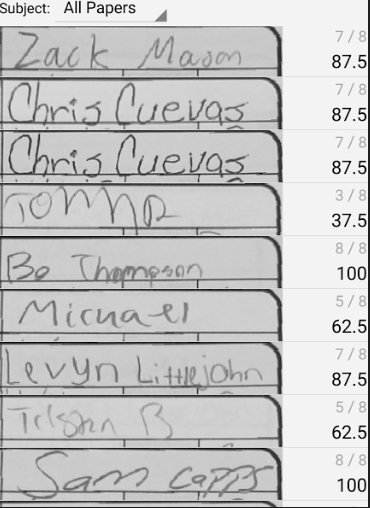 Subject: All Papers
Zack Mason 7 / 8
87.5
Chris Cuevas 7 / 8
87.5
Chris Cuevas 7 / 8
87.5
3 / 8
37.5
Bo Thompson 8 / 8
100
Micuael 5 / 8
62.5
Levyn Littlejohn 7 / 8
87.5
B 5 / 8
62.5
Sam Capps 8 / 8
100